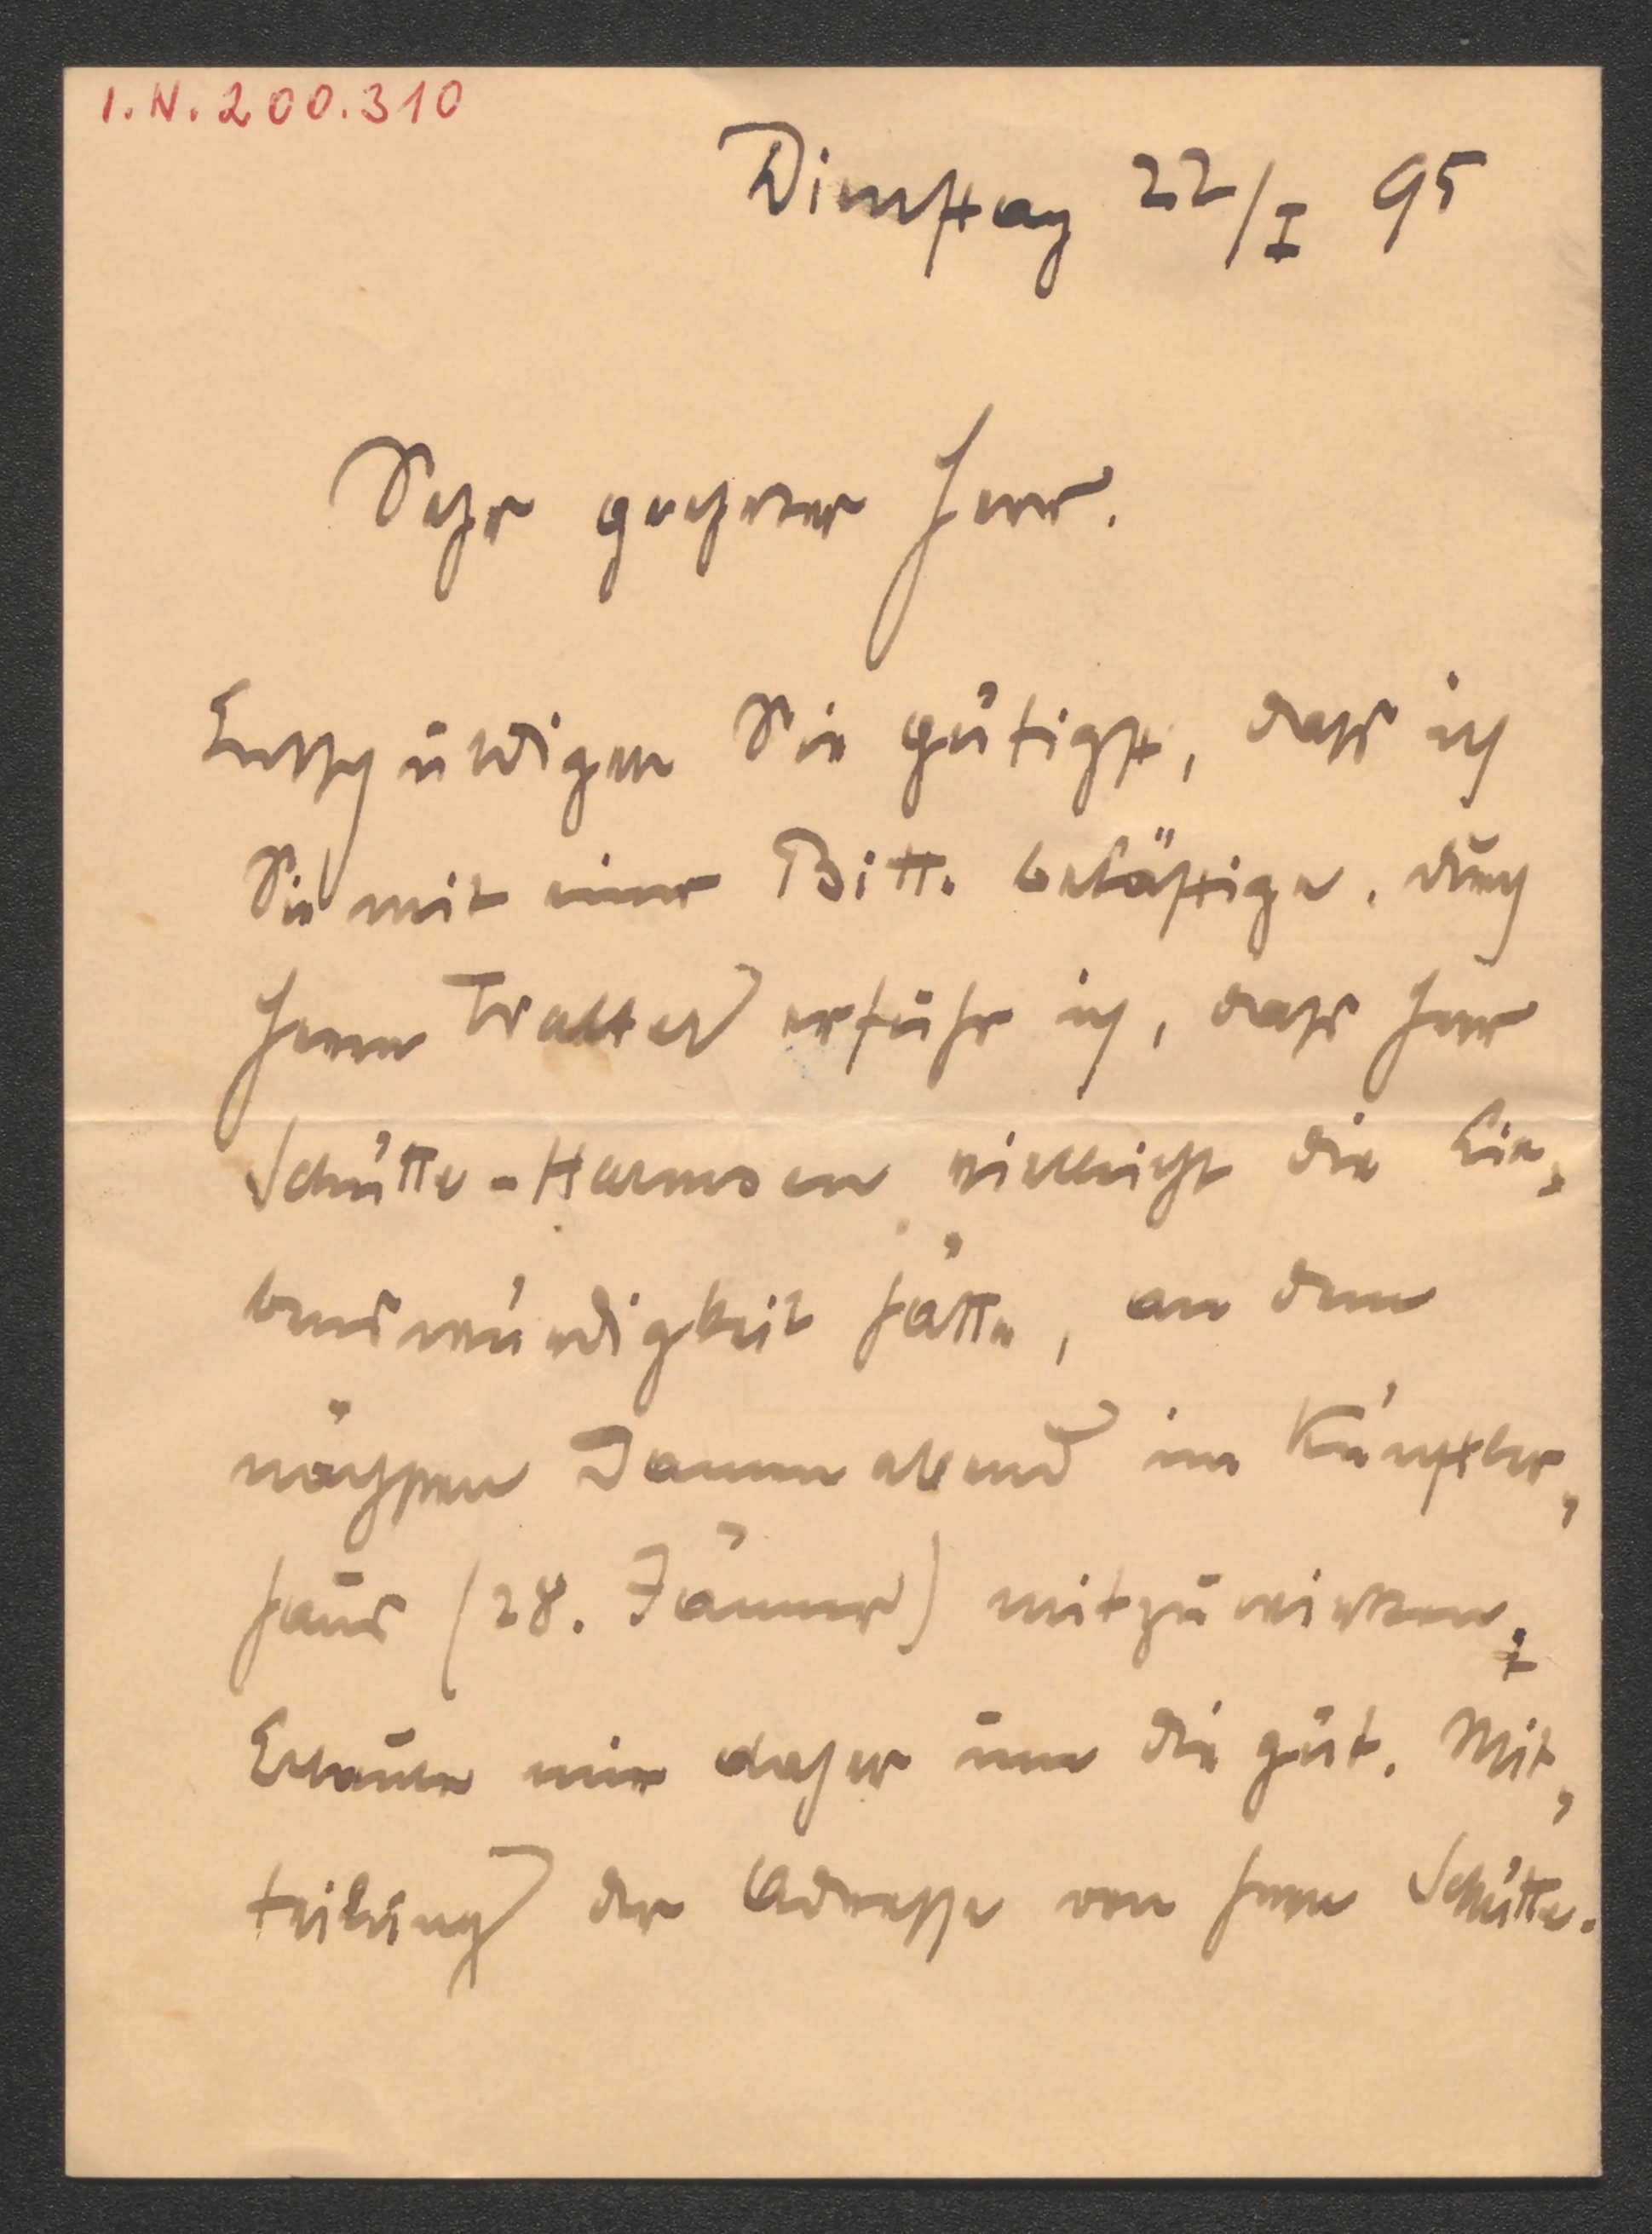 I.N. 200.310
Dienstag 22/I 95
Sehr geehrter Herr.
Entschuldigen Sie gütigst, dass ich
Sie mit einer Bitte belästige. durch
Herrn erfuhr ich, dass Herr
Schütte-Harmsen vielleicht die Lie-
benswürdigkeit hätte, an dem
nächsten Damenabend im Künstler-
haus (28. Jänner) mitzuwirken.
Erlaube mir daher um die güt. Mit-
teilung der Adresse von Herrn Schütte.